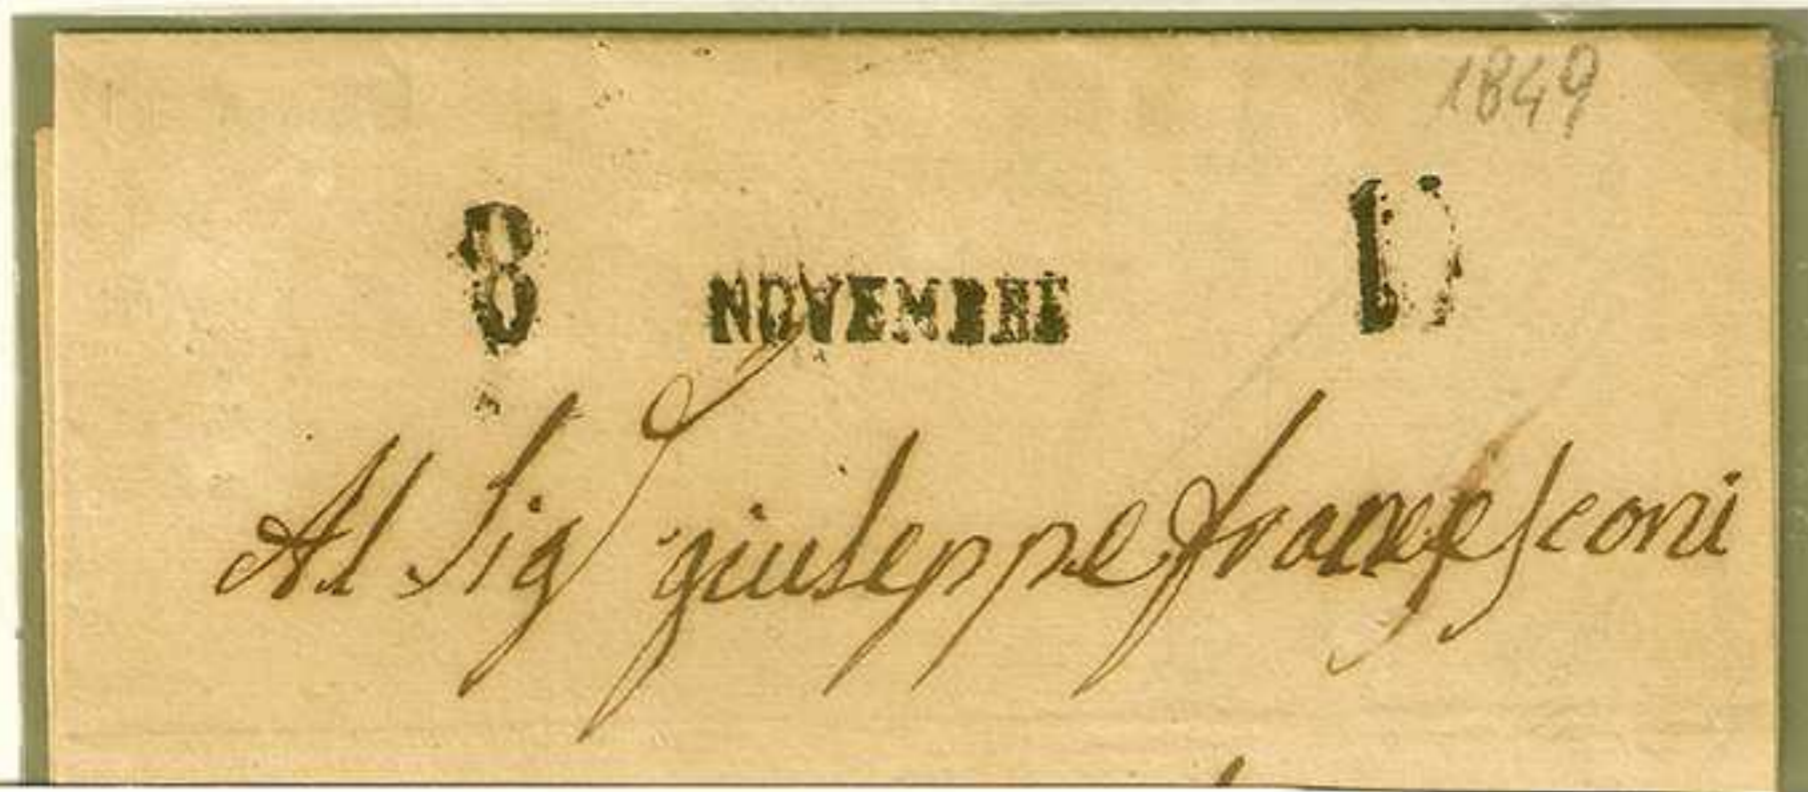 1849
8 NOVEMBRE D
Al Sig giuseppe francesconi